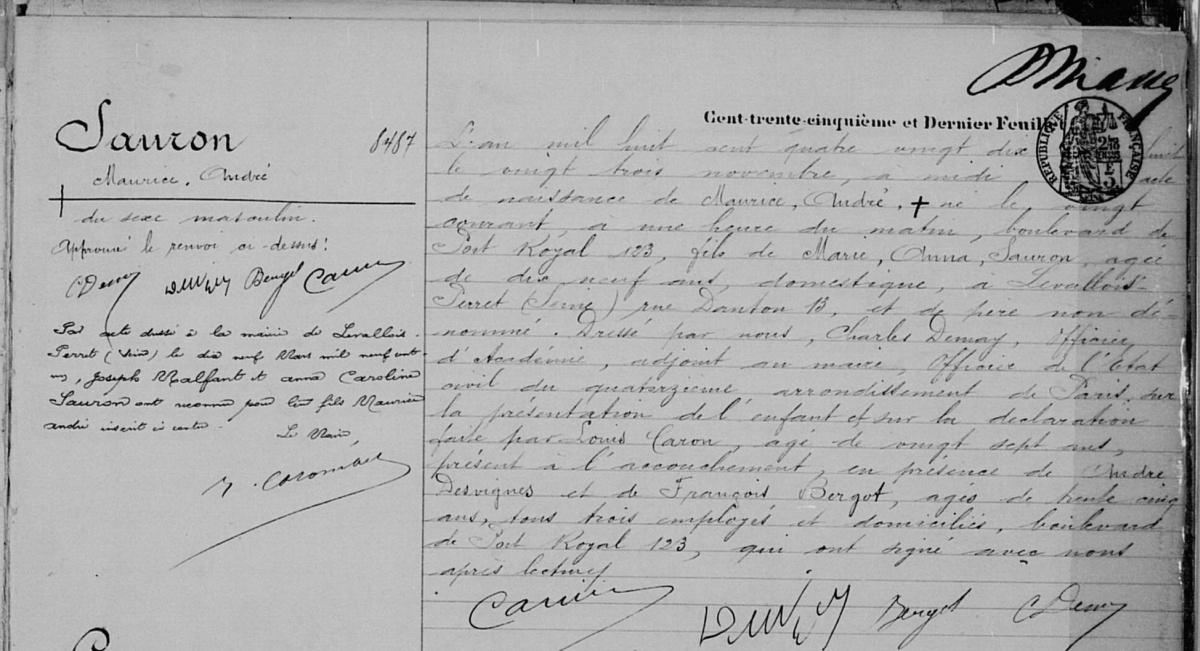 Cent-trente-cinquième et Dernier Feuillet
RÉPUBLIQUE FRANÇAISE
Sauron
8487
Maurice, André
du sexe masculin.
Approuvé le renvoi ci-dessus!
Demay Bergot Caron
Par acte dressé à la mairie de Levallois-
Perret (Seine) le dix neuf Mars mil neuf cent
un, Joseph Malfant et anna Caroline
Sauron ont reconnu pour leur fils Maurice
andré inscrit ci contre.
Le Maire,
L'an mil huit cent quatre vingt dix huit
le vingt trois novembre, à midi acte
de naissance de Maurice, André, + né le vingt
courant, à une heure du matin, boulevard de
Port Royal 123, fils de Marie, Anna, Sauron, agée
de dix neuf ans, domestique, à Levallois-
Perret (Seine) rue Danton 13, et de père non dé-
nommé. Dressé par nous, Charles Demay, Officier
d'Académie, adjoint au maire, Officier de l'Etat
civil du quatorzième arrondissement de Paris, sur
la présentation de l'enfant et sur la déclaration
faite par Louis Caron, agé de vingt sept ans,
présent à l'accouchement, en présence de André
Desvignes et de François Bergot, agés de trente cinq
ans, tous trois employés et domiciliés, boulevard
de Port Royal 123, qui ont signé avec nous
après lecture
Caron Bergot Demay